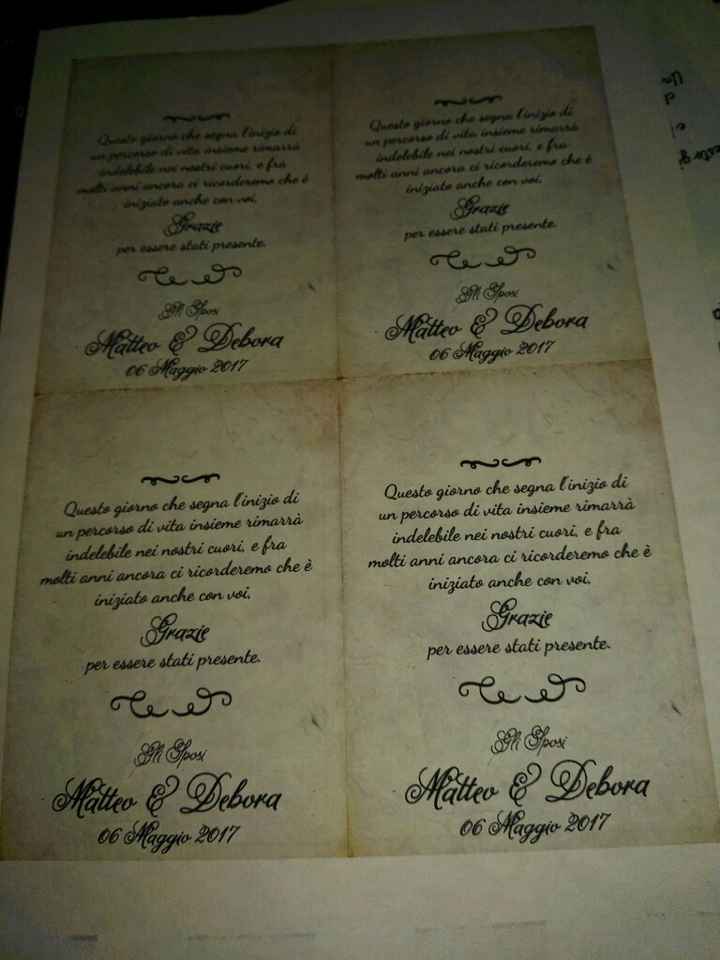 Questo giorno che segna l'inizio di
un percorso di vita insieme rimarrà
indelebile nei nostri cuori, e fra
molti anni ancora ci ricorderemo che è
iniziato anche con voi.
Grazie
per essere stati presente.
Gli Sposi
Matteo & Debora
06 Maggio 2017
Questo giorno che segna l'inizio di
un percorso di vita insieme rimarrà
indelebile nei nostri cuori, e fra
molti anni ancora ci ricorderemo che è
iniziato anche con voi.
Grazie
per essere stati presente.
Gli Sposi
Matteo & Debora
06 Maggio 2017
Questo giorno che segna l'inizio di
un percorso di vita insieme rimarrà
indelebile nei nostri cuori, e fra
molti anni ancora ci ricorderemo che è
iniziato anche con voi.
Grazie
per essere stati presente.
Gli Sposi
Matteo & Debora
06 Maggio 2017
Questo giorno che segna l'inizio di
un percorso di vita insieme rimarrà
indelebile nei nostri cuori, e fra
molti anni ancora ci ricorderemo che è
iniziato anche con voi.
Grazie
per essere stati presente.
Gli Sposi
Matteo & Debora
06 Maggio 2017